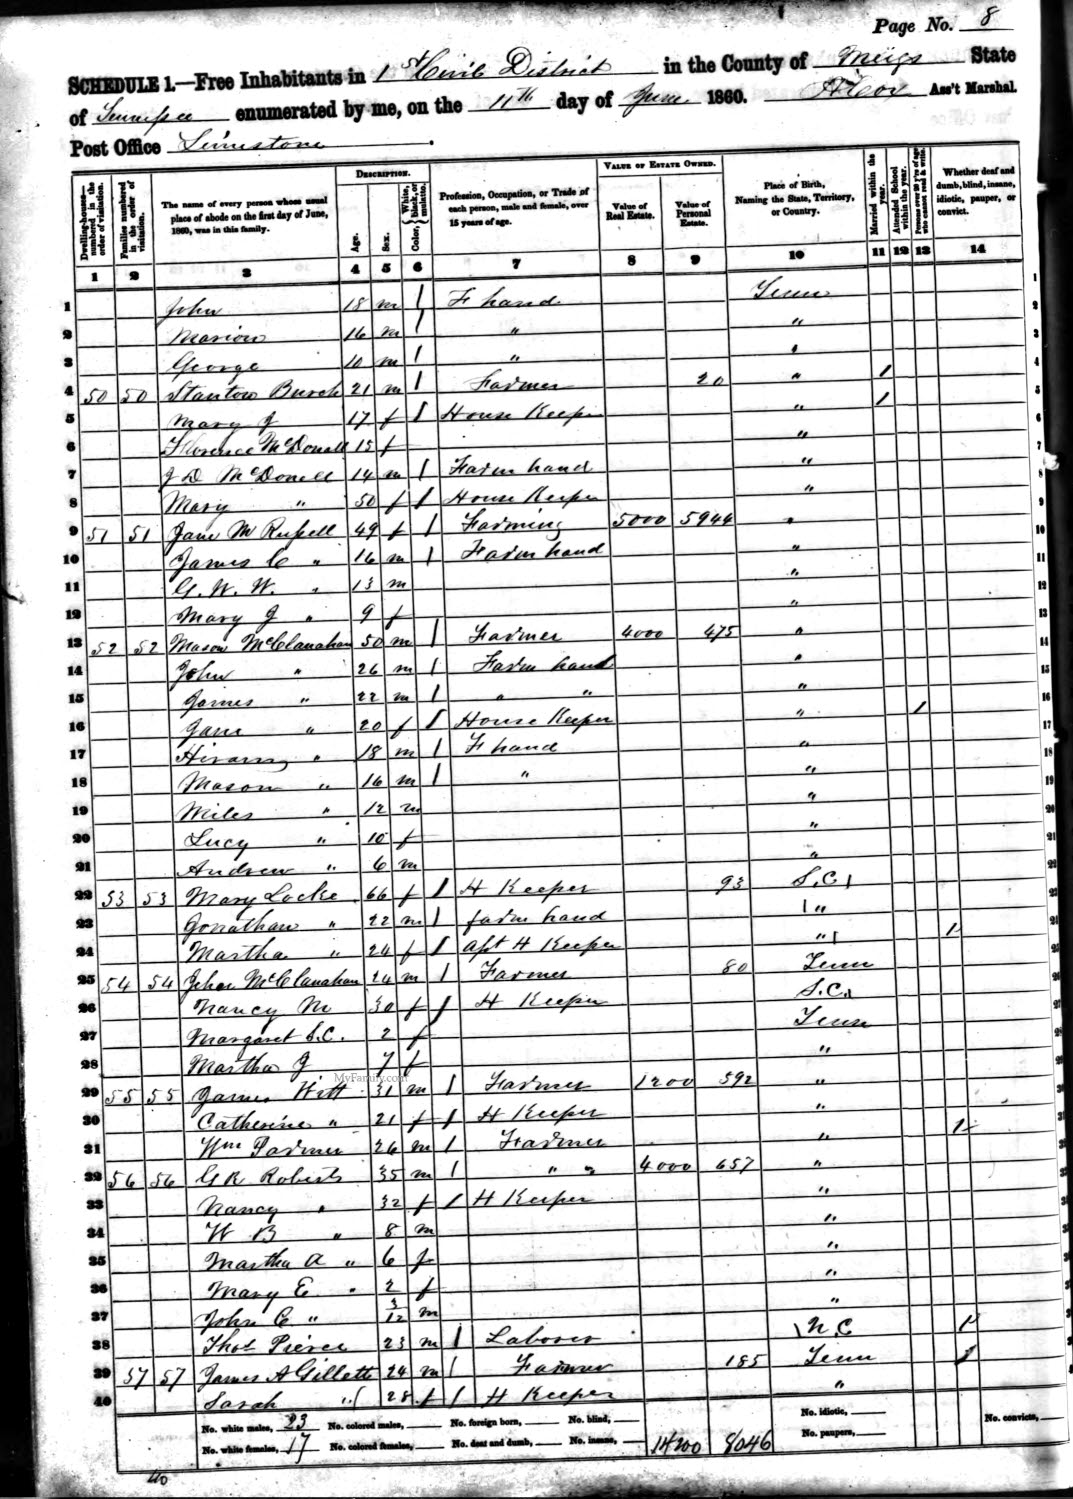 Page No. 8
SCHEDULE 1.—Free Inhabitants in 1st Civil District in the County of Meigs State
of Tennessee enumerated by me, on the 11th day of June 1860. Ass't Marshal.
Post Office Limestone
Dwelling-houses—numbered in the order of visitation.
Families numbered in the order of visitation.
The name of every person whose usual place of abode on the first day of June, 1860, was in this family.
DESCRIPTION.
Age.
Sex.
Color, White, black, or mulatto.
Profession, Occupation, or Trade of each person, male and female, over 15 years of age.
VALUE OF ESTATE OWNED.
Value of Real Estate.
Value of Personal Estate.
Place of Birth, Naming the State, Territory, or Country.
Married within the year.
Attended School within the year.
Persons over 20 y'rs of age who cannot read & write.
Whether deaf and dumb, blind, insane, idiotic, pauper, or convict.
1 2 3 4 5 6 7 8 9 10 11 12 13 14
1 John 18 m / F hand Tenn
2 Marion 16 m / " "
3 George 10 m / " "
4 50 50 Stanton Burch 21 m / Farmer 20 " 1
5 Mary J 17 f / House Keeper " 1
6 Florence McDonell 15 f "
7 J D McDonell 14 m / Farm hand "
8 Mary " 50 f / House Keeper "
9 51 51 Jane M Russell 49 f / Farming 5000 5944 "
10 James C " 16 m / Farm hand "
11 G. W. W. " 13 m "
12 Mary J " 9 f "
13 52 52 Mason McClanahan 50 m / Farmer 4000 475 "
14 John " 26 m / Farm hand "
15 James " 22 m / " " "
16 Jane " 20 f / House Keeper " 1
17 Hiram " 18 m / F hand "
18 Mason " 16 m / " "
19 Miles " 12 m "
20 Lucy " 10 f "
21 Andrew " 6 m "
22 53 53 Mary Locke 66 f / H Keeper 93 S.C.
23 Jonathan " 22 m / farm hand "
24 Martha " 24 f / asst H Keeper " 1
25 54 54 John McClanahan 24 m / Farmer 80 Tenn
26 Nancy M 30 f / H Keeper S.C.
27 Margaret S.C. 2 f Tenn
28 Martha J 7 f "
29 55 55 James Witt 31 m / Farmer 1200 592 "
30 Catherine " 21 f / H Keeper "
31 Wm Farmer 26 m / Farmer " 1
32 56 56 G R Roberts 35 m / " " 4000 657 "
33 Nancy " 32 f / H Keeper "
34 W B " 8 m "
35 Martha A " 6 f "
36 Mary E " 2 f "
37 John C " 3/12 m "
38 Thos Pierce 23 m / Laborer N.C 1
39 57 57 James A Gillette 24 m / Farmer 185 Tenn 1
40 Sarah " 28 f / H Keeper "
MyFamily.com
No. white males, 23 No. colored males, No. foreign born, No. blind, No. idiotic,
No. white females, 17 No. colored females, No. deaf and dumb, No. insane, 14200 8046 No. paupers, No. convicts,
40